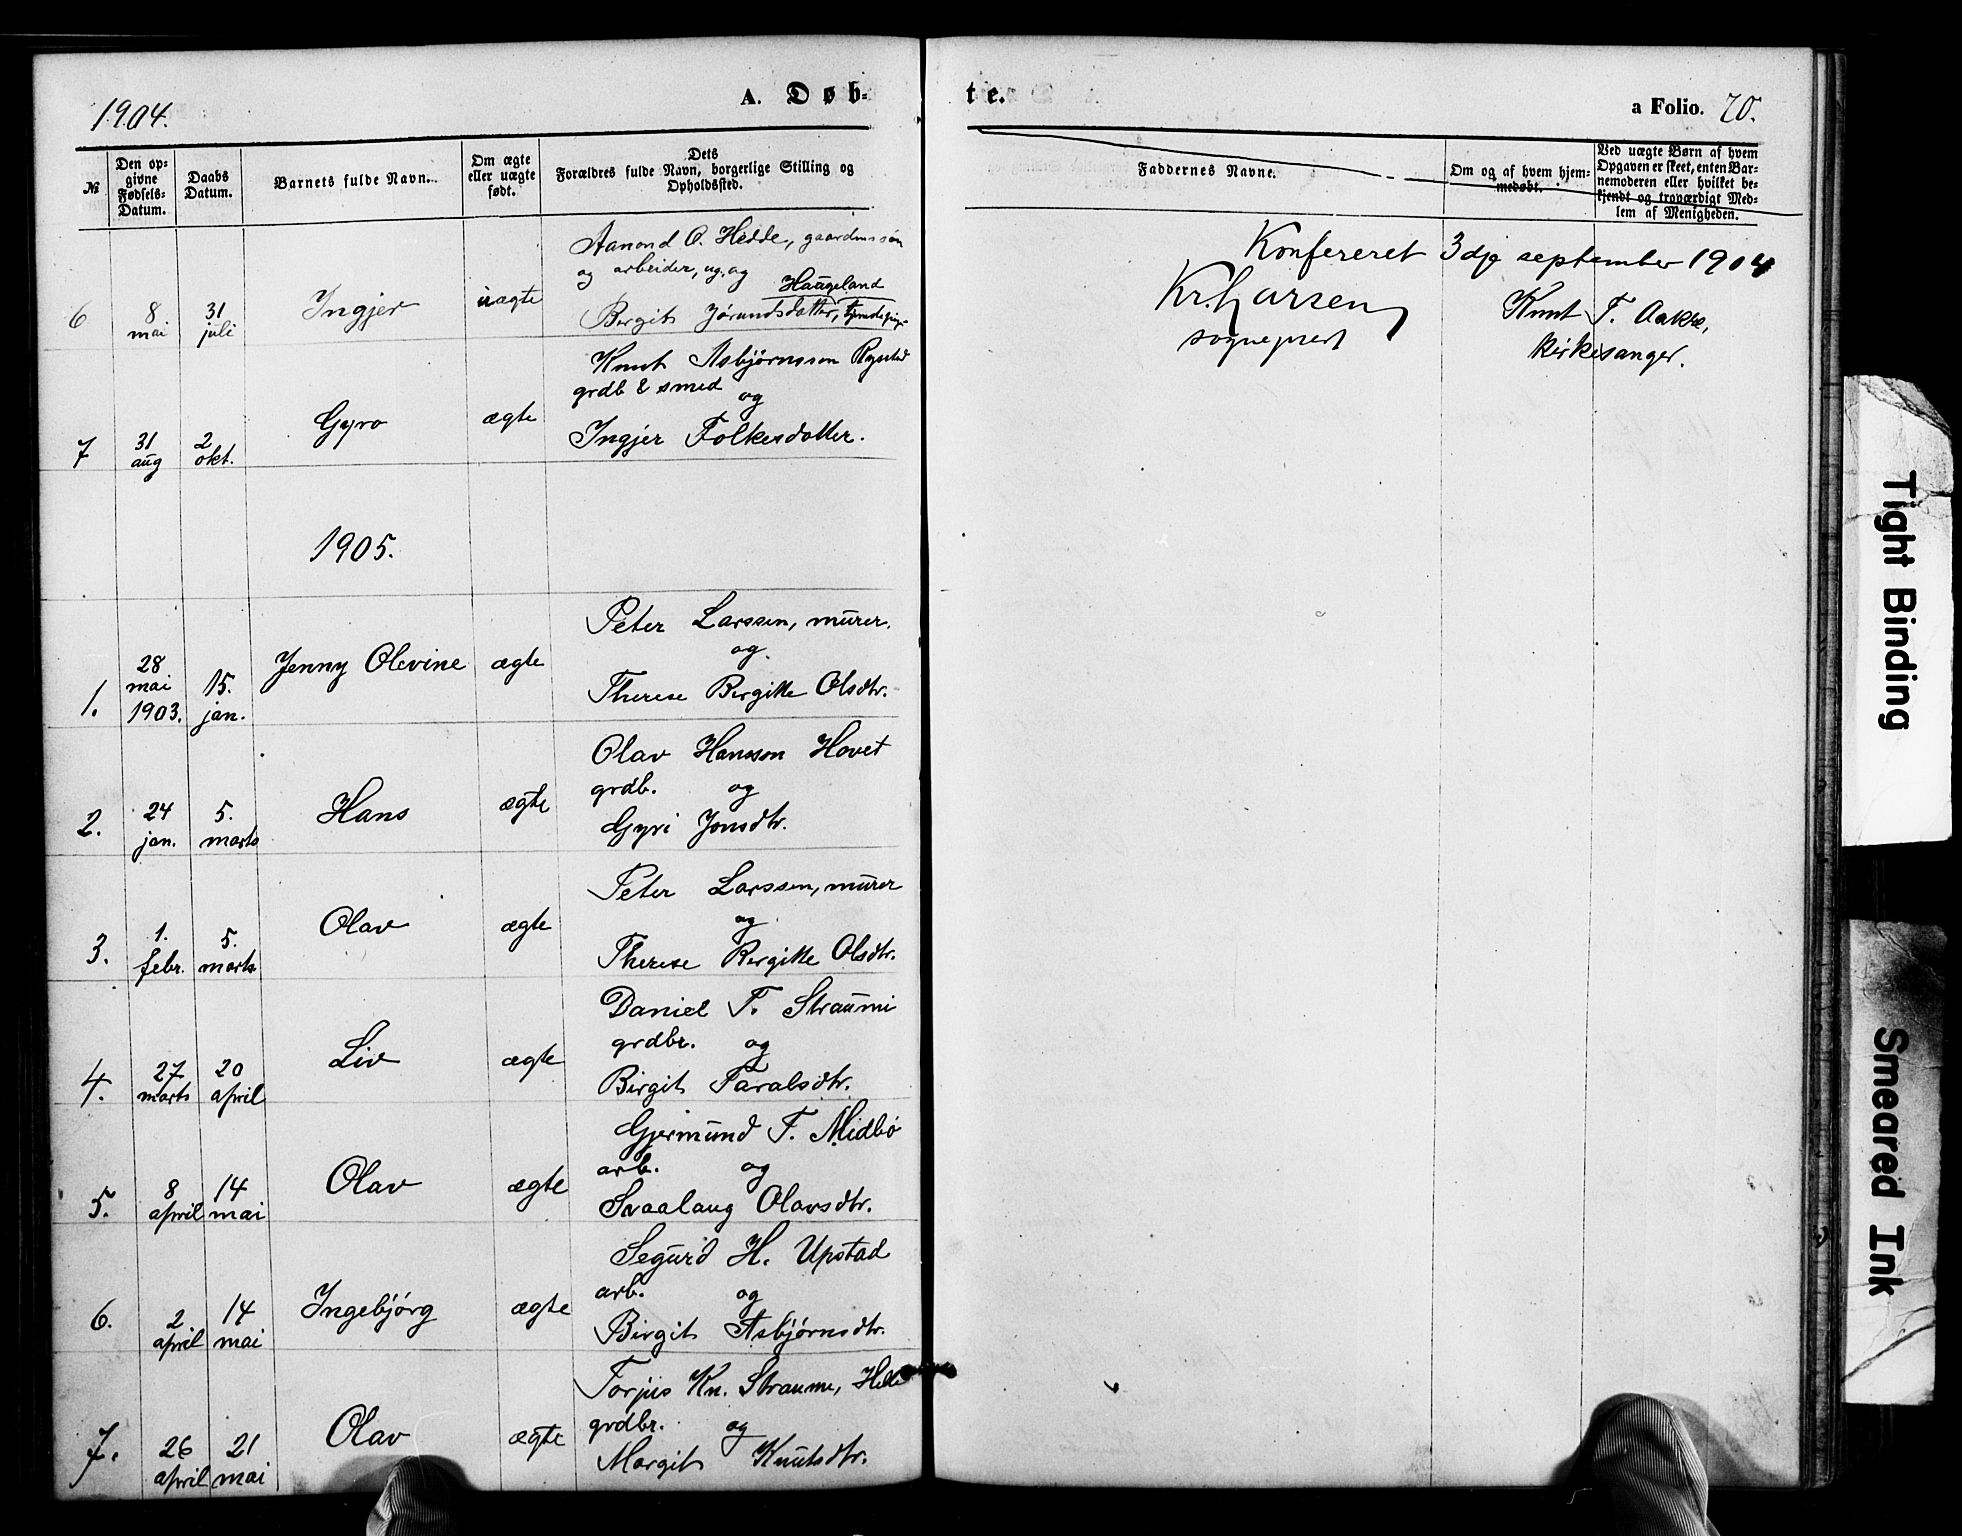 1904.
A. Døb-
te.
a Folio. 70.
№
Den op-
givne
Fødsels-
Datum.
Daabs
Datum.
Barnets fulde Navn.
Om ægte
eller uægte
født.
Dets
Forældres fulde Navn, borgerlige Stilling og
Opholdssted.
Faddernes Navne.
Om og af hvem hjem-
medøbt.
Ved uægte Børn af hvem
Opgaven er skeet, enten Bar-
nemoderen eller hvilket be-
kjendt og troværdigt Med-
lem af Menigheden.
6
8
mai
31
juli
Ingjer
uægte
Aanond O. Hedde, gaardmssøn
og arbeider, ug. og
Haugeland
Birgit Jørundsdatter,
7
31
aug
2
okt.
Gyro
ægte
Knut Asbjørnsson Rystad
grdb & smed
og
Ingjer Folkesdatter.
1905.
1.
28
mai
1903.
15.
jan.
Jenny Olevine
ægte
Peter Larssen, murer.
og
Therese Birgitte Olsdtr.
2.
24
jan.
5.
marts
Hans
ægte
Olav Hansson Hovet
grdb. og
Gyri Jonsdtr.
3.
1.
febr.
5.
marts
Olav
ægte
Peter Larssen, murer
og
Therese Birgitte Olsdtr.
4.
27
marts
20
april
Liv
ægte
Daniel F. Straumi
grdbr. og
Birgit Taralsdtr.
5.
8
april
14
mai
Olav
ægte
Gjermund F. Midbø
arb. og
Svaalaug Olavsdtr.
6.
2
april
14
mai
Ingebjørg
ægte
Segurd H. Upstad
arb. og
Birgit Asbjørnsdtr.
7.
26
april
21
mai
Olav
ægte
Torjus Kn. Straume, Helle
grdbr. og
Margit Knutsdtr.
Konfereret 3dje september 1904
Kr. Larsen
sogneprest
Knut F. Aakre,
kirkesanger.
Tight Binding
Smeared Ink